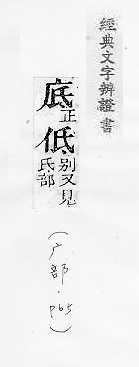 經典文字辨證書
底正低别又見氐部
(广部.p65)